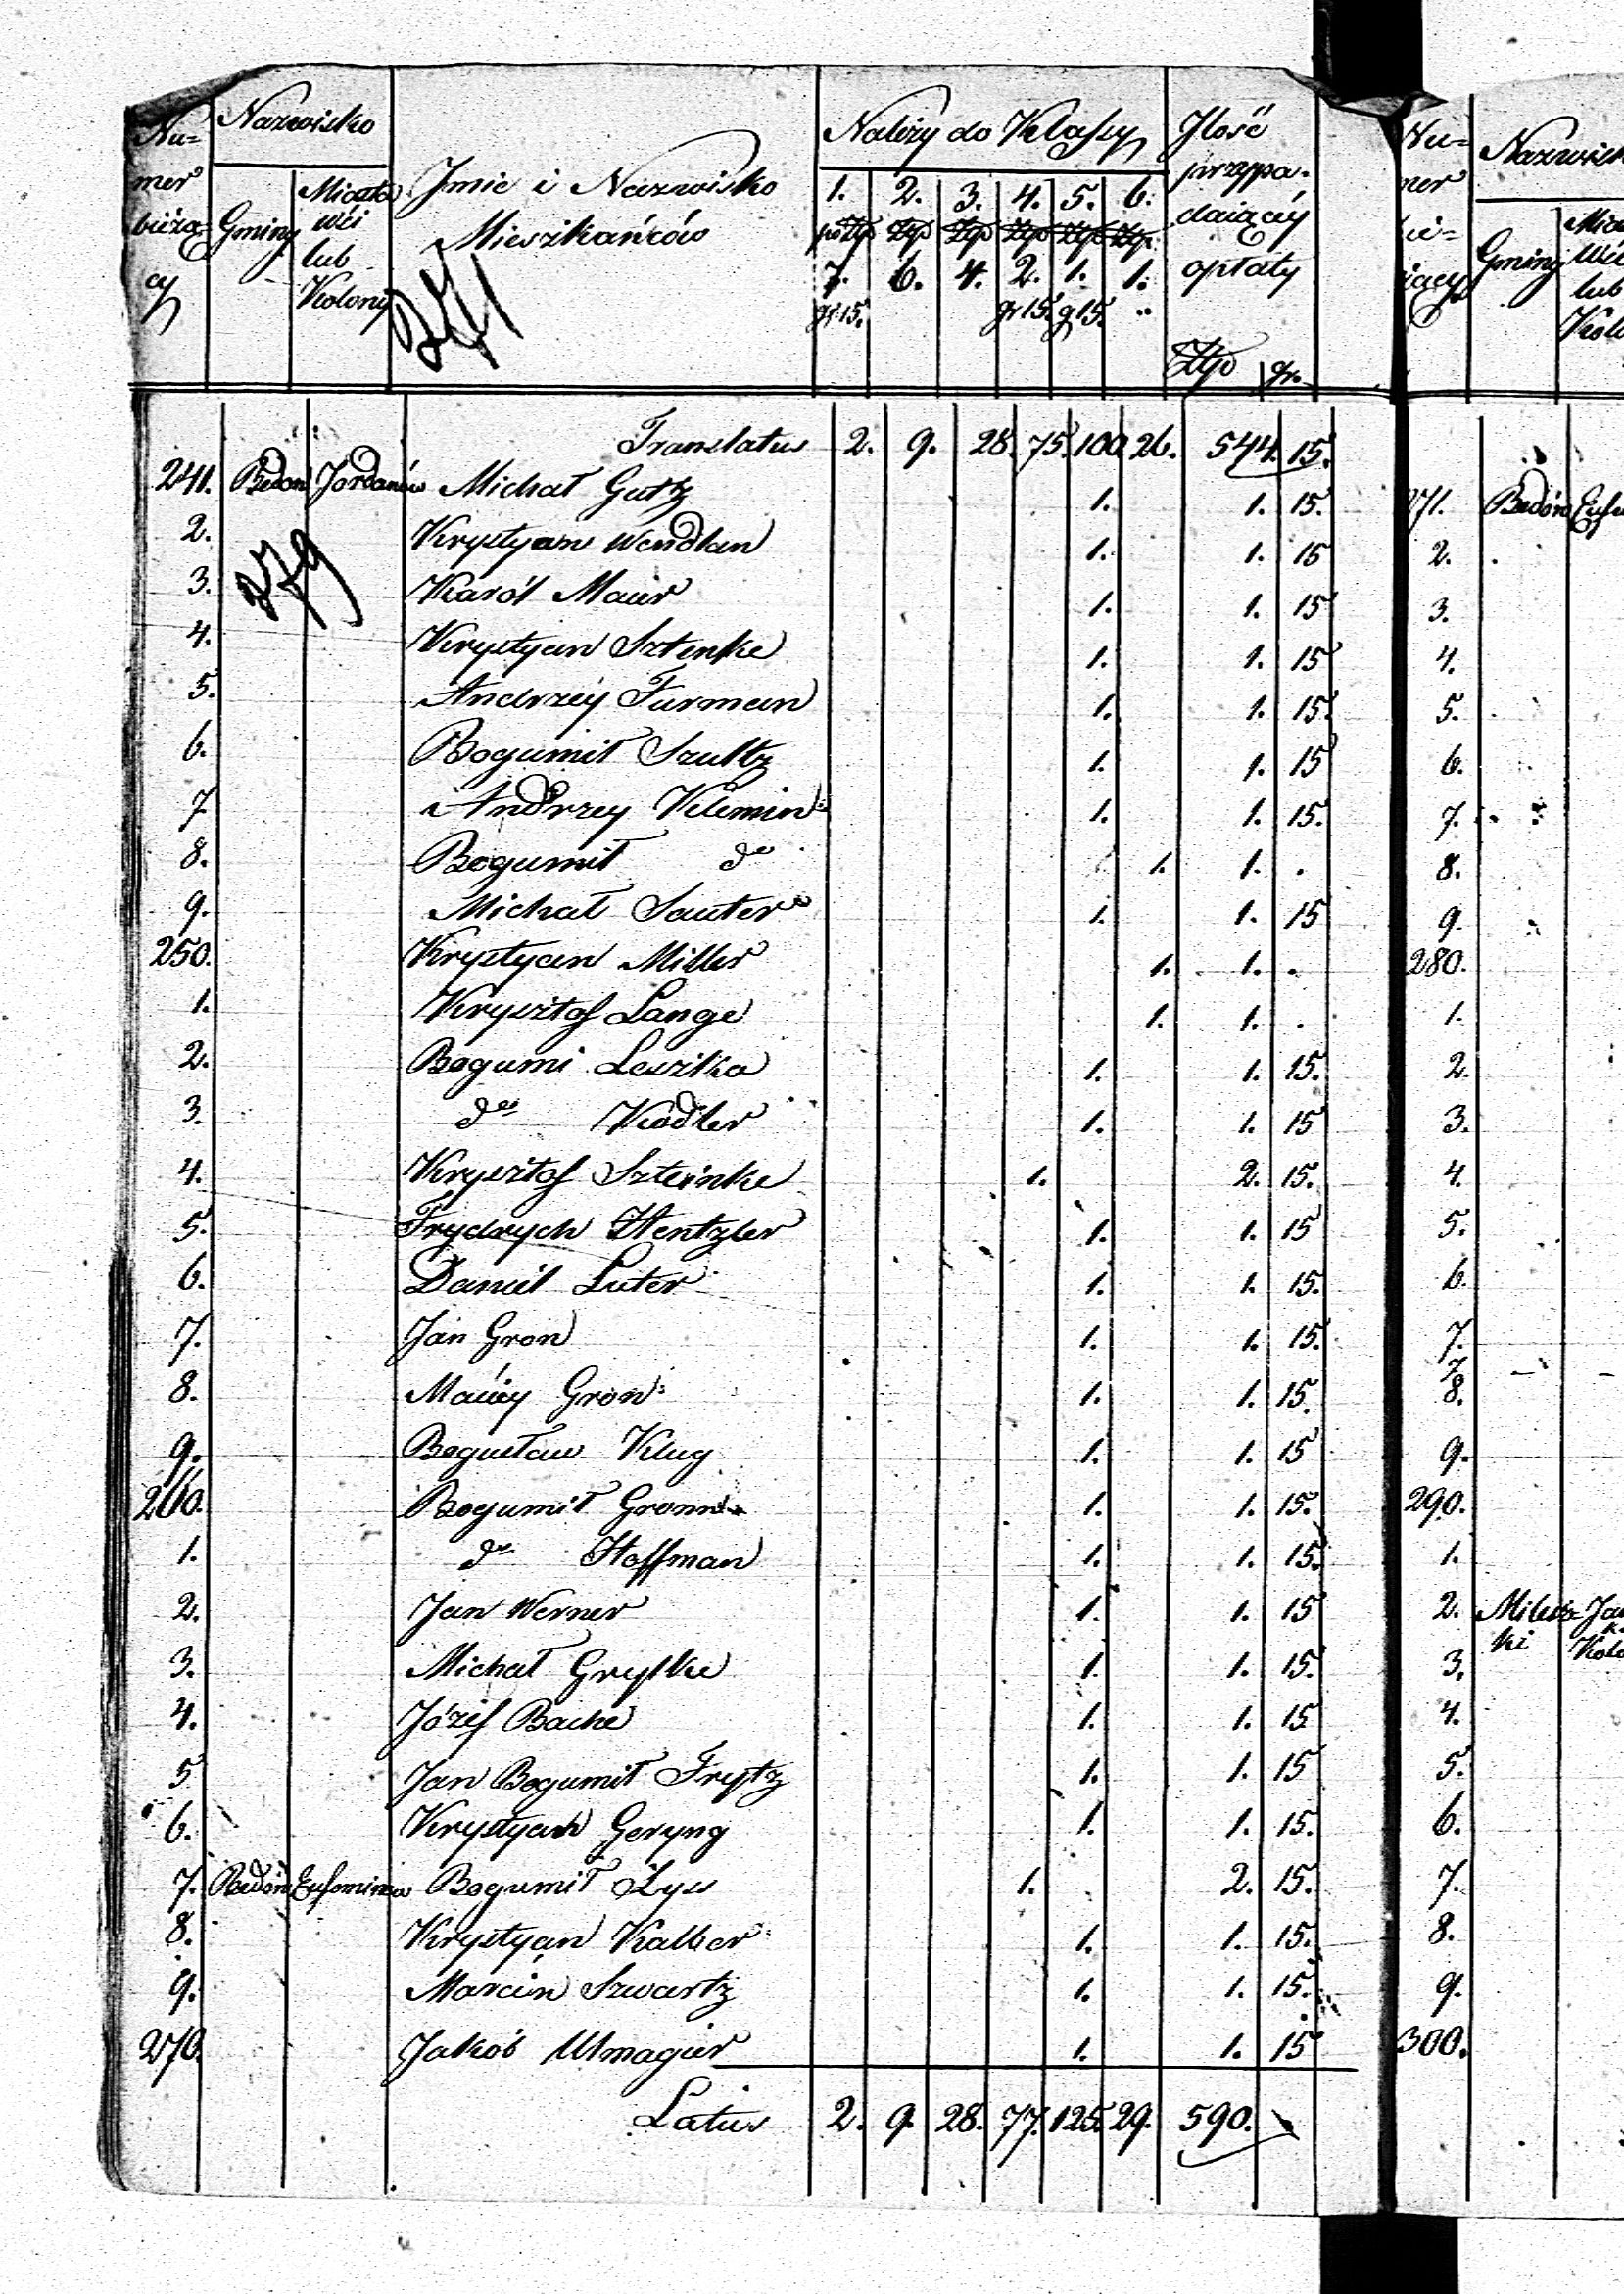 Numer bieżący | Nazwisko Gminy | Miasta wsi lub Kolonij | Jmie i Nazwisko Mieszkańców | Należy do Klassy | Jlość przypadaiącéy opłaty
1. 2. 3. 4. 5. 6.
po Złp Złp Złp Złp Złp Złp
7. 6. 4. 2. 1. 1.
gr 15. gr 15. g 15. ..
Złp gr.
271
Translatus 2. 9. 28. 75. 100. 26. 544. 15.
241. Bedoń Jordanów Michał Gutz 1. 1. 15.
2. Krystyan Wendlan 1. 1. 15
279
3. Karól Maier 1. 1. 15
4. Krystyan Sztenke 1. 1. 15
5. Andrzéy Furman 1. 1. 15.
6. Bogumił Szultz 1. 1. 15
7 Andrzey Klemin 1. 1. 15.
8. Bogumił do 1. 1. .
9. Michał Sauter 1. 1. 15
250. Krystyan Miller 1. 1. .
1. Krysztof Lange 1. 1. .
2. Bogumi Leszka 1. 1. 15.
3. do Kiodler 1. 1. 15
4. Krysztof Szteinke 1. 2. 15.
5. Frydrych Hentzler 1. 1. 15
6. Daniel Luter 1. 1. 15.
7. Jan Gron 1. 1. 15.
8. Maciey Gron 1. 1. 15.
9. Bogusław Klug 1. 1. 15
260. Bogumił Gronn 1. 1. 15.
1. do Hoffman 1. 1. 15.
2. Jan Werner 1. 1. 15
3. Michał Grylke 1. 1. 15.
4. Józef Backe 1. 1. 15
5 Jan Bogumił Frytz 1. 1. 15
6. Krystyan Geryng 1. 1. 15.
7. Bedoń Eufominów Bogumił Zys 1. 2. 15.
8. Krystyan Kalber 1. 1. 15.
9. Marcin Szwartz 1. 1. 15.
270. Jakób Ulmagier 1. 1. 15
Latus 2. 9. 28. 77. 125. 29. 590.
Nazwisk
Gminy
lub
271. Bedoń
2.
3.
4.
5.
6.
7.
8.
9.
280.
1.
2.
3.
4.
5.
6.
7.
7.
8.
9.
290.
1.
2. Milesz-
ki
3.
4.
5.
6.
7.
8.
9.
300.